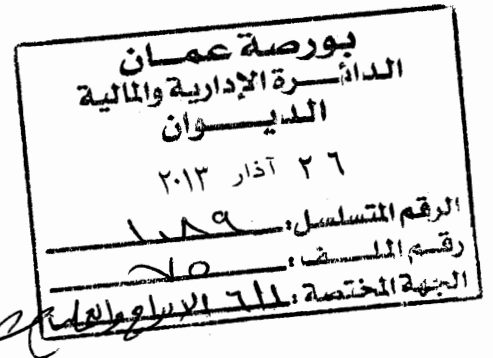 بورصة عمان
الدائرة الإدارية والمالية
الديوان
٢٦ آذار ٢٠١٣
الرقم المتسلسل:
رقم الملف:
الجهة المختصة: